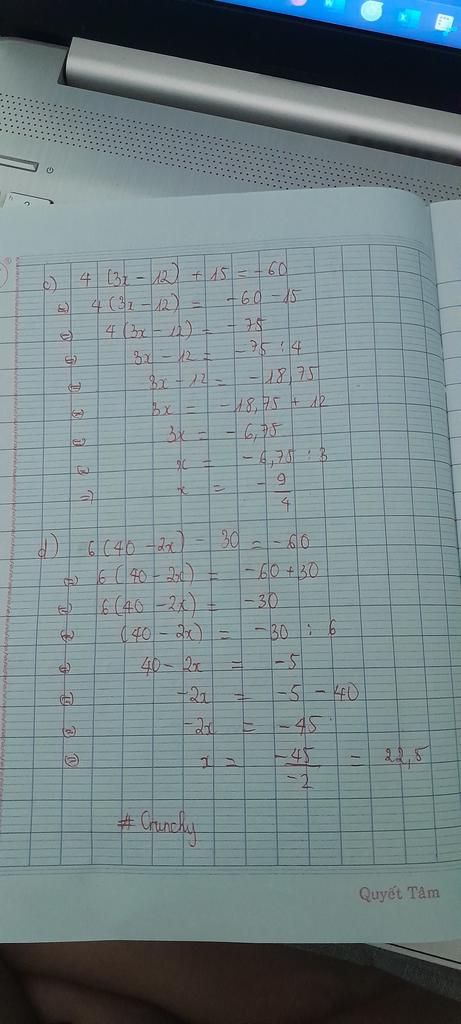 c) 4 (3x - 12) + 15 = -60
⇔ 4 (3x - 12) = -60 - 15
⇔ 4 (3x - 12) = -75
⇔ 3x - 12 = -75 : 4
⇔ 3x - 12 = -18,75
⇔ 3x = -18,75 + 12
⇔ 3x = -6,75
⇔ x = -6,75 : 3
⇒ x = -9/4
d) 6 (40 - 2x) - 30 = -60
⇔ 6 (40 - 2x) = -60 + 30
⇔ 6 (40 - 2x) = -30
⇔ (40 - 2x) = -30 : 6
⇔ 40 - 2x = -5
⇔ -2x = -5 - 40
⇔ -2x = -45
⇔ x = -45/-2 = 22,5
# Crunchy
Quyết Tâm